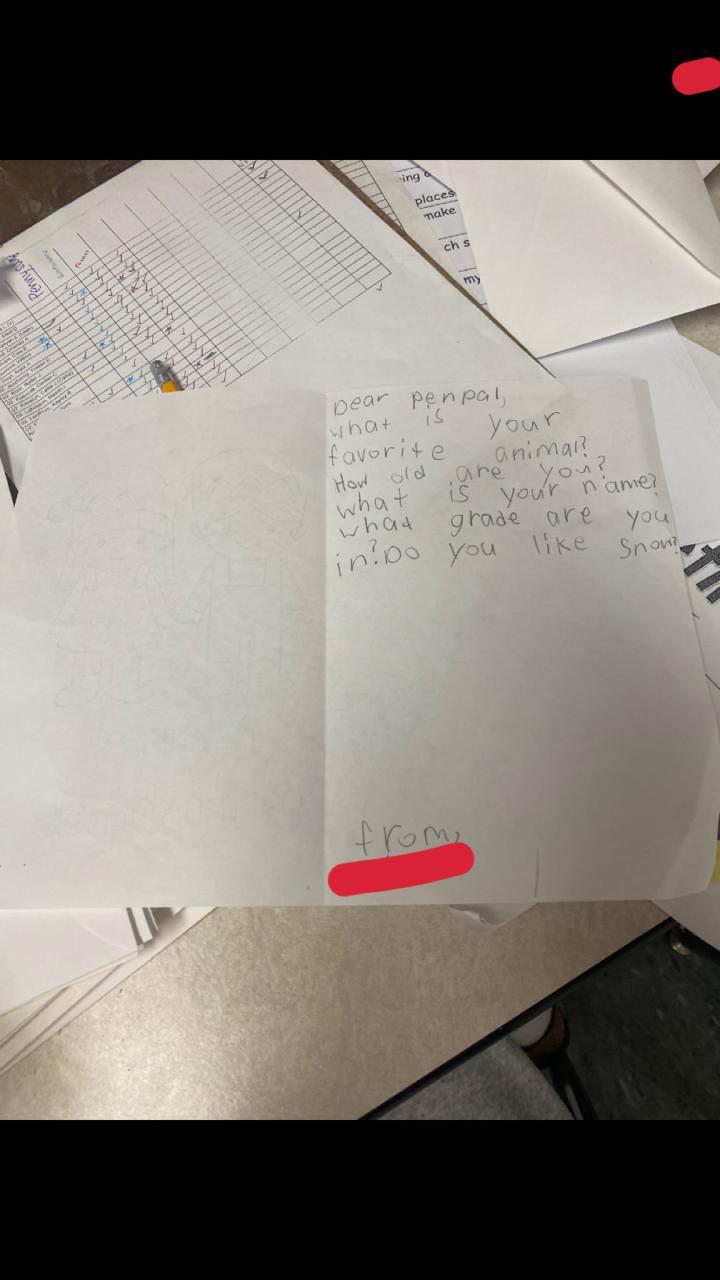 Penny
ing
places
make
ch s
my
Dear penpal,
what is your
favorite animal?
How old are you?
what is your name?
what grade are you
in? Do you like snow?
from,